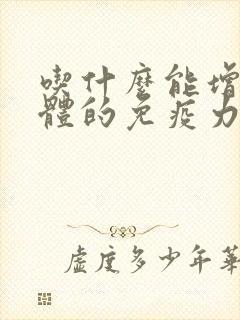 喫什麼能增
體的免疫力
虛度多少年華